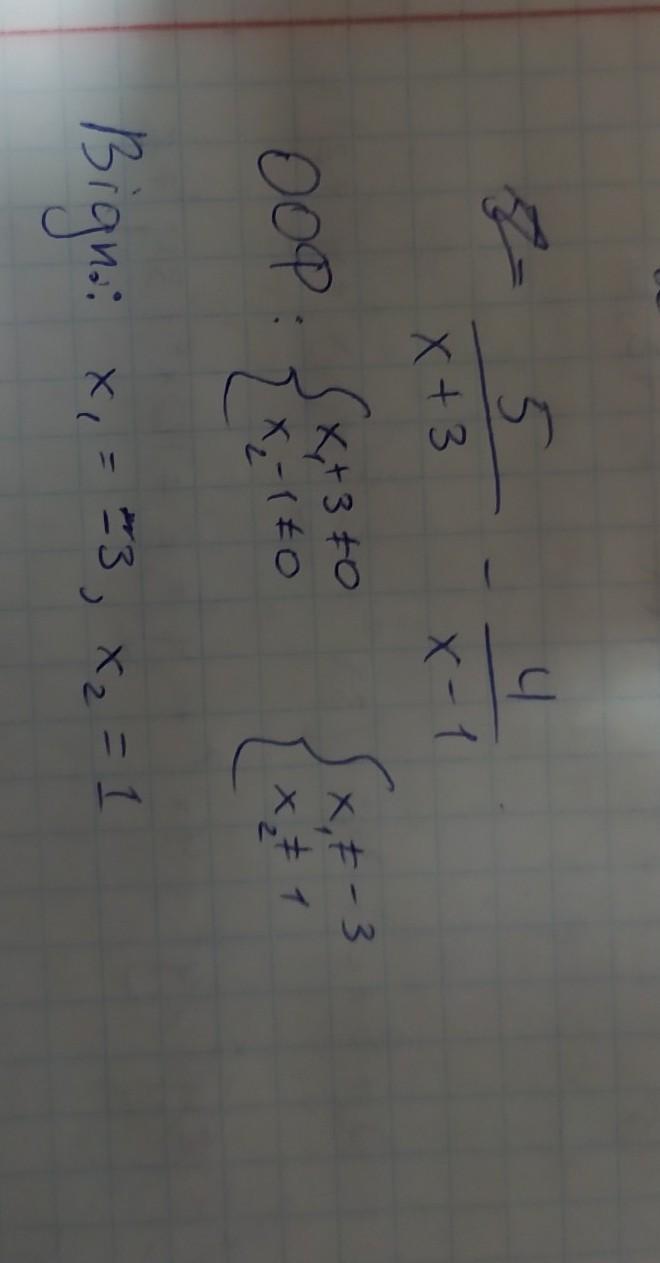 y = 5/(x+3) - 4/(x-1)
ООФ: { x₁+3≠0 { x₁≠-3
x₂-1≠0 x₂≠1
Відп.: x₁ = -3, x₂ = 1